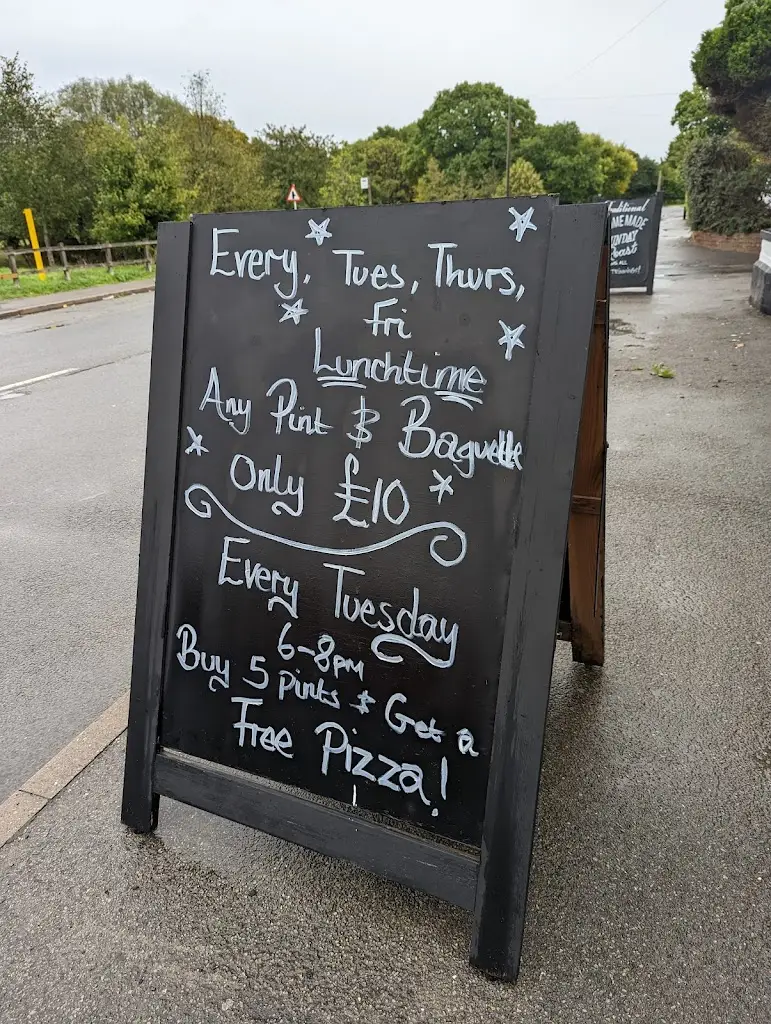 Every, Tues, Thurs,
Fri
Lunchtime
Any Pint & Baguette
Only £10
Every Tuesday
6-8pm
Buy 5 Pints & Get a
Free Pizza!
ME MADE
Roast